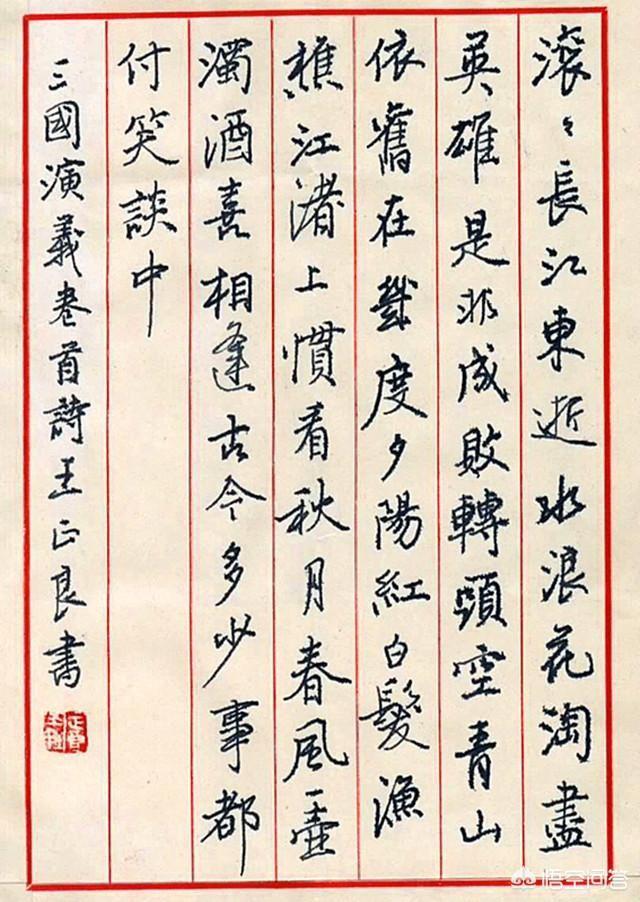 滚々長江東逝水浪花淘盡
英雄是非成敗轉頭空青山
依舊在幾度夕陽紅白髮漁
樵江渚上慣看秋月春風一壺
濁酒喜相逢古今多少事都
付笑談中
三國演義卷首詩王正良書
悟空问答